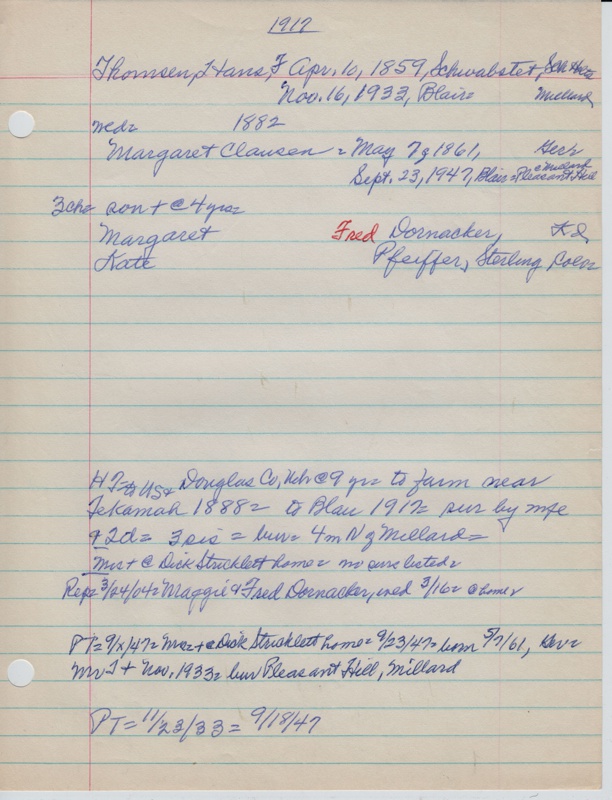 1917
Thomsen, Hans, F Apr. 10, 1859, Schwabstet, Sch Hols
Nov. 16, 1933, Blair= Millard
wed= 1882
Margaret Clausen = May 7, 1861, Ger
Sept. 23, 1947, Blair= Pleasant Hill
@ Millard
3ch= son + @ 4 yrs=
Margaret Fred Dornacker,
Kate Pfeiffer, Sterling, Color
H T= to US & Douglas Co, Neb @ 9 yr= to farm near
Tekamah 1888= to Blair 1917= sur by wife
& 2d= 3 sis = bur= 4m N of Millard=
Mrs + @ Dick Stricklett home= no surs listed=
Rep= 3/24/04= Maggie & Fred Dornacker, wed 3/16= @ home
PT= 9/x/47= Mrs= + @ Dick Stricklett home= 9/23/47= born 5/7/61, Ger=
Mr T + Nov. 1933= bur Pleasant Hill, Millard
PT= 11/23/33= 9/18/47